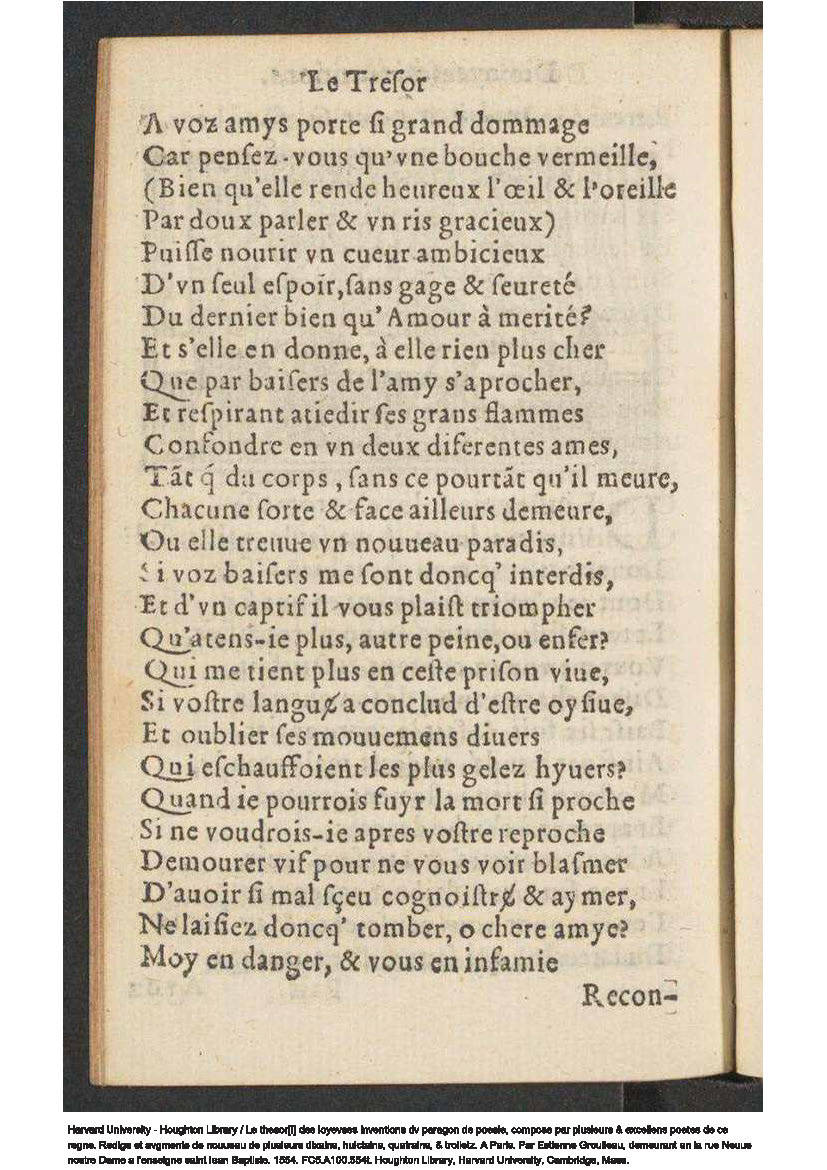 Le Treſor
A voz amys porte ſi grand dommage
Car penſez-vous qu'vne bouche vermeille,
(Bien qu'elle rende heureux l'œil & l'oreille
Par doux parler & vn ris gracieux)
Puiſſe nourir vn cueur ambicieux
D'vn ſeul eſpoir, ſans gage & ſeureté
Du dernier bien qu'Amour à merité?
Et s'elle en donne, à elle rien plus cher
Que par baiſers de l'amy s'aprocher,
Et reſpirant atiedir ſes grans flammes
Confondre en vn deux diferentes ames,
Tãt q́ du corps, ſans ce pourtãt qu'il meure,
Chacune ſorte & face ailleurs demeure,
Ou elle treuue vn nouueau paradis,
Si voz baiſers me ſont doncq' interdis,
Et d'vn captif il vous plaiſt triompher
Qu'atens-ie plus, autre peine, ou enfer?
Qui me tient plus en ceſte priſon viue,
Si voſtre languɇ a conclud d'eſtre oyſiue,
Et oublier ſes mouuemens diuers
Qui eſchauffoient les plus gelez hyuers?
Quand ie pourrois fuyr la mort ſi proche
Si ne voudrois-ie apres voſtre reproche
Demourer vif pour ne vous voir blaſmer
D'auoir ſi mal ſçeu cognoiſtrɇ & aymer,
Ne laiſiez doncq' tomber, o chere amye?
Moy en danger, & vous en infamie
Recon-
Harvard University - Houghton Library / Le thesor[i] des ioyevses inventions dv paragon de poesie, compose par plusieurs & excellens poetes de ce
regne. Redige et avgmente de nouueau de plusieurs dixains, huictains, quatrains, & trolletz. A Paris. Par Estienne Groulleau, demeurant en la rue Neuue
nostre Dame a l'enseigne saint Iean Baptiste. 1554. FC5.A100.554t. Houghton Library, Harvard University, Cambridge, Mass.